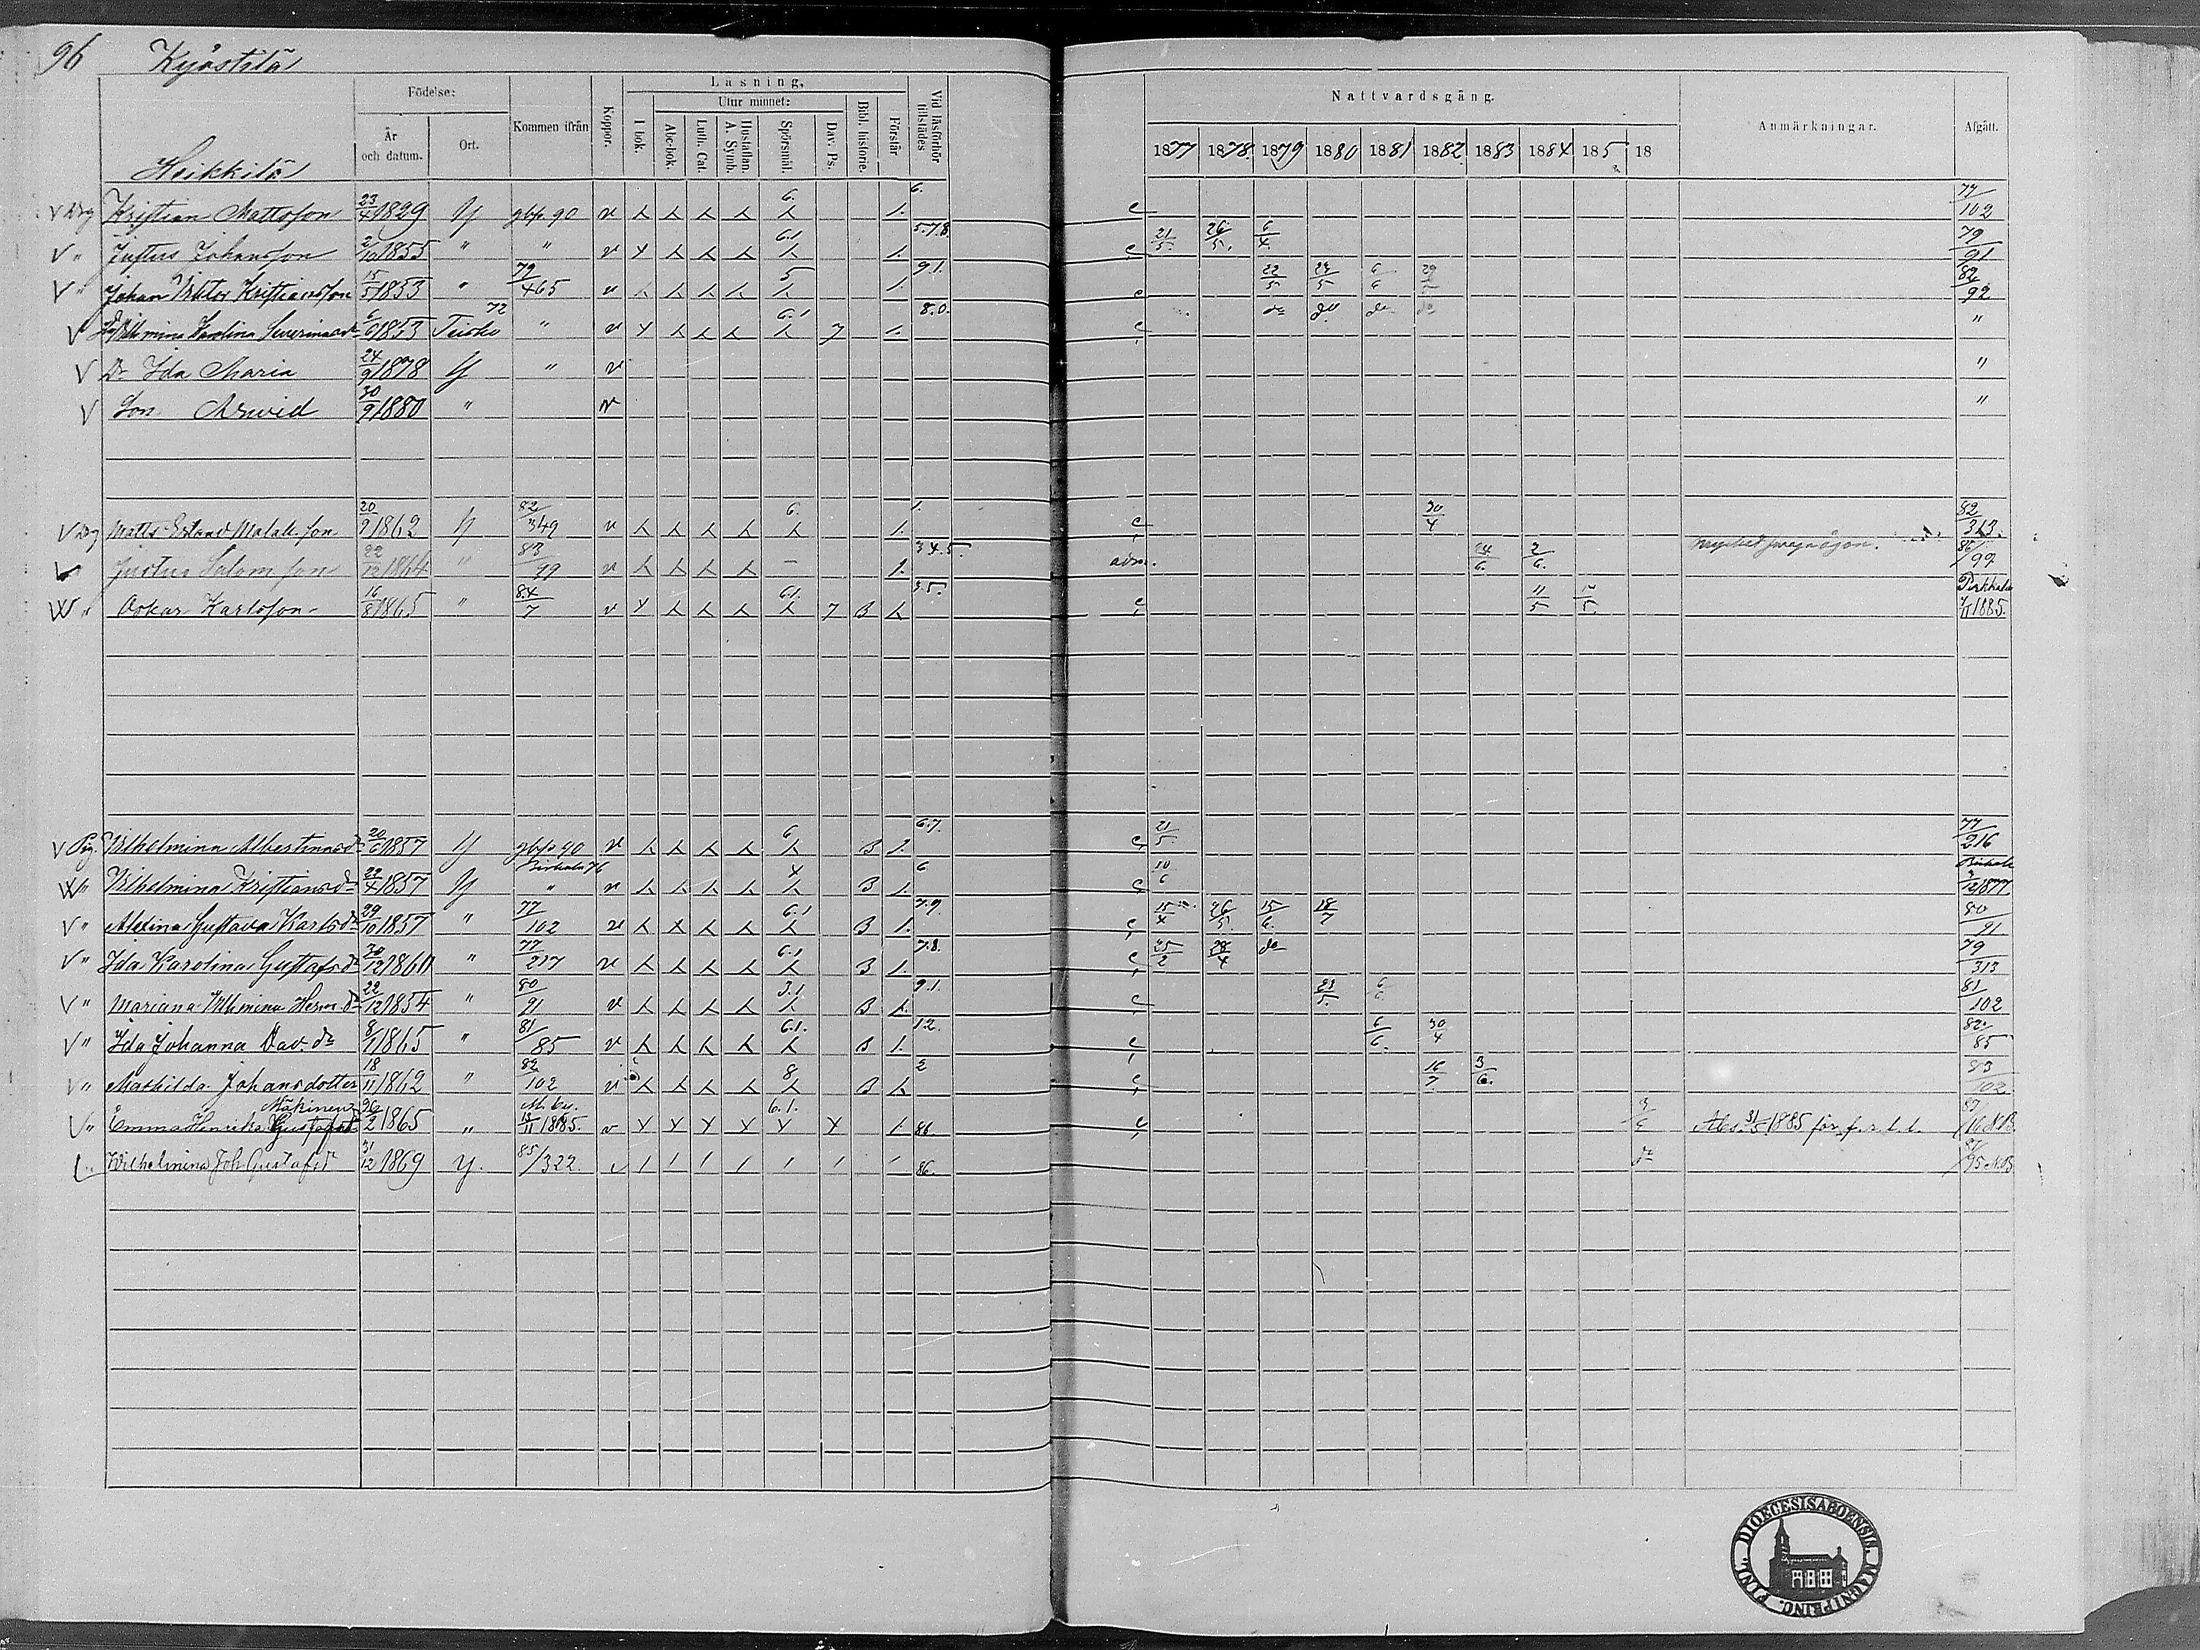 96 Kyöstilä
Heikkilä
Födelse: År och datum. Ort. Kommen ifrån Koppor. Läsning, I bok. Utur minnet: Abc-bok. Luth. Cat. Hustaflan. A. Symb. Spörsmål. Dav. Ps. Bibl. historie. Förstår Vid läsförhör tillstädes
Nattvardsgång. Anmärkningar. Afgått.
1877 1878 1879 1880 1881 1882 1883 1884 185 18
v Drg Kristian Mattsson 23/4 1829 Y gbp 90 v 6. 1. 6. 77/102
v " Justus Johansson 2/10 1855 " " v 6.1 1. 5.7.8. 21/5. 26/5. 6/4. 79/91
v " Johan Viktor Kristiansson 15/5 1853 " 79/465 v 5 1. 9.1. 22/5 23/5 6/6 29 82/92
v Vilhmina Karolina Severinad:r 6/6 1853 Teisko 72 " v 6.1 7 1. 8.0. do do do do "
v Dr Ida Maria 24/9 1878 Y " v "
v Son Arvid 30/9 1880 " v "
v Drg Matts Erland Matalt. son 20/9 1862 Y 82/349 v 6. 1. 1. 30/4 82/313.
" Justus Salom. son 22/12 1864 " 83/79 v – 1. 3.4.5. adm. 24/6. 2/6. Mycket svag 86/99
W " Oskar Karlsson 16/8 1865 " 84/7 v 6.1. 7 B 3.5. 11/5 /5. Pirkkala 7/11 1885.
v Pig. Vilhelmina Albertinasdr 20/6 1857 Y gbp 90 v 6 B 1. 6.7. 21/5. 77/216
W " Vilhelmina Kristiansdr 22/4 1857 Y Birkala 76 " v 4 B 1. 6 10/6 Birkala 3/12 1877
v " Alexina Gustava Karlsdr 29/10 1857 " 77/102 v 6.1 B 1. 7.9. 15/4 26/5. 15/6. 18/7 80/91
v " Ida Karolina Gustafsdr 30/12 1860 " 77/217 v 6.1 B 1. 7.8. 25/2 28/4 do 79/313
v " Mariana Vilhmina Herm. dr 22/12 1854 " 80/91 v 3.1 B 9.1. 23/5. 6/6. 81/102
v " Ida Johanna Dav. dr 8/1 1865 " 81/85 v 6.1. B 1. 1.2. 6/6. 30/4 82/85
v " Mathilda Johansdotter 18/11 1862 " 82/102 v 8 B 2 16/7 3/6. 83/102
v " Emma Henrika Gustafsdr Mäkinen 26/2 1865 " 13/11 1885. v 6.1. 1 86. Abs. 31/5 1885 för f. r. l. l. N.B.
Wilhelmina Joh. Gustafsdr 31/12 1869 Y. 85/322 86. do 95 N.B.
DIOECESIS ABOENSIS. MAGNI PRINC. FINL.